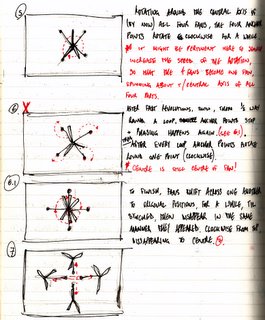 5
ROTATING AROUND THE CENTRAL AXIS OF
(BY NOW) ALL FOUR FANS, THE FOUR ANCHOR
POINTS ROTATE CLOCKWISE FOR A WHILE.
IT MIGHT BE PERTINENT HERE TO
INCREASE THE SPEED OF THE ROTATION,
SO THAT THE 4 FANS BECOME ONE FAN,
SPINNING ABOUT CENTRAL AXIS OF ALL
FOUR FANS.
X
6
AFTER FEW REVOLUTIONS, THEN ½ WAY
ROUND A LOOP, ANCHOR POINTS STOP
+ PHASING HAPPENS AGAIN. (SEE 6.1)
AFTER EVERY LOOP ANCHOR POINTS ROTATE
ROUND ONE POINT (CLOCKWISE).
CENTRE IS ONCE CENTRE OF FAN!
6.1
TO FINISH, FANS DRIFT ACROSS ONE ANOTHER
TO ORIGINAL POSITIONS, FOR A WHILE, TIL
THEN DISAPPEAR IN THE SAME
MANNER THEY APPEARED, CLOCKWISE FROM TOP,
DISAPPEARING TO CENTRE.
7